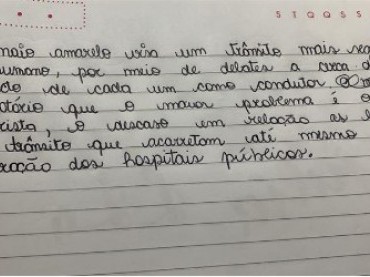 S T Q Q S S
maio amarelo visa um trânsito mais
umano, por meio de debates a cerca
de cada um como condutor
que o maior problema é o
o descaso em relação as
trânsito que acarretam até mesmo
dos hospitais públicos.